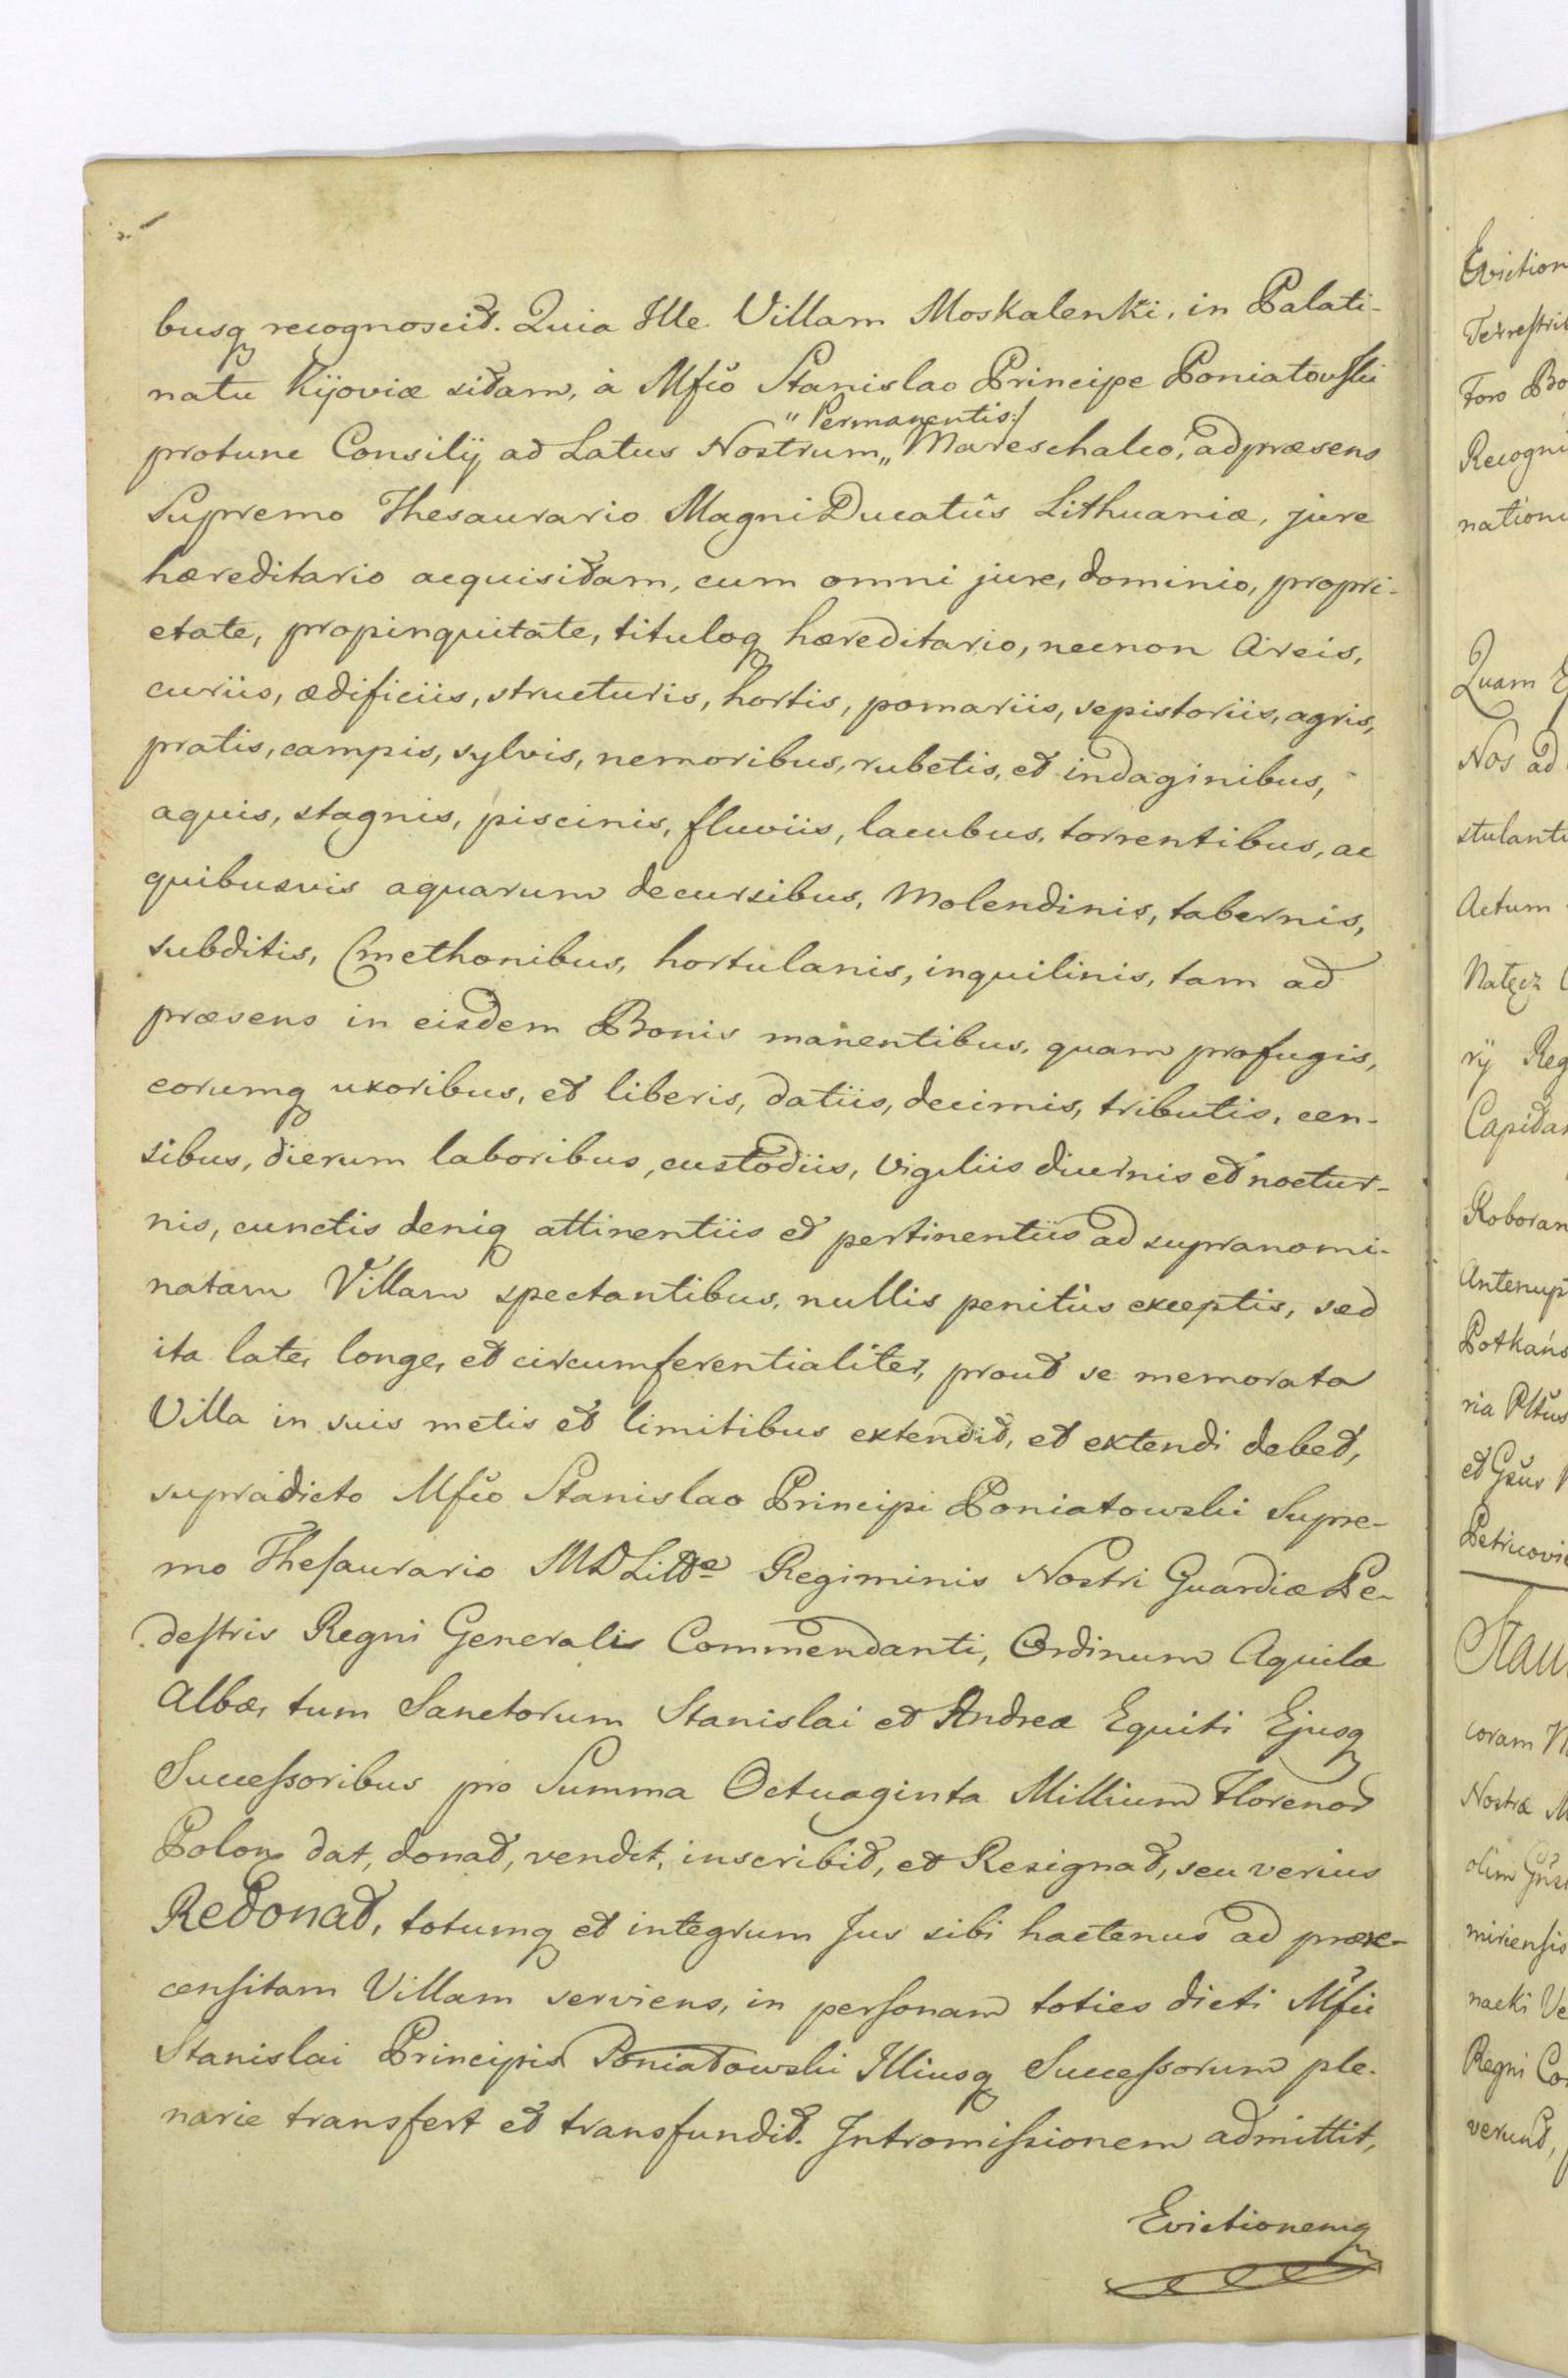 busq recognoscit. Quia Ille Villam Moskalenki, in Palati-
natu Kijoviæ sitam, à Mfco Stanislao Principe Poniatowski
"Permanentis:/
protunc Consilij ad Latus Nostrum„ Mareschalco, adpræsens
Supremo Thesaurario Magni Ducatûs Lithuaniæ, jure
hæreditario acquisitam, cum omni jure, dominio, propri-
etate, propinquitate, tituloq hæreditario, necnon Areis,
curiis, ædificiis, structuris, hortis, pomariis, sepistoriis, agris,
pratis, campis, sylvis, nemoribus, rubetis, et indaginibus,
aquis, stagnis, piscinis, fluviis, lacubus, torrentibus, ac
quibusvis aquarum decursibus, Molendinis, tabernis,
subditis, Cmethonibus, hortulanis, inquilinis, tam ad
præsens in eisdem Bonis manentibus, quam profugis,
eorumq uxoribus, et liberis, datiis, decimis, tributis, cen-
sibus, dierum laboribus, custodiis, vigiliis diurnis et noctur-
nis, cunctis deniq attinentiis et pertinentiis ad supranomi-
natam Villam spectantibus, nullis penitùs exceptis, sed
ita late, longe, et circumferentialiter, prout se memorata
Villa in suis metis et limitibus extendit, et extendi debet,
supradicto Mfco Stanislao Principi Poniatowski Supre-
mo Thesaurario MD Litte Regiminis Nostri Guardiæ Pe-
destris Regni Generali Commendanti, Ordinum Aquilæ
Albæ, tum Sanctorum Stanislai et Andreæ Equiti Ejusq
Successoribus pro Summa Octuaginta Millium Florenor
Polon dat, donat, vendit, inscribit, et Resignat, seu verius
Redonat, totumq et integrum Jus sibi hactenus ad præ-
censitam Villam serviens, in personam toties dicti Mfci
Stanislai Principis Poniatowski Illiusq Successorum ple-
narie transfert et transfundit. Intromissionem admittit,
Evictionemq
Eviction
Terrestri
Foro Bo
Recogni
nationi
Quam
Nos ad
stulanti
Actum
Natęcz
rij Reg
Capita
Roboran
Antenup
Potkańs
ria Pltûs
et Gsus
Petricovi
Stan
coram N
Nostræ M
olim
miriensis
nacki Ve
Regni Co
verunt,